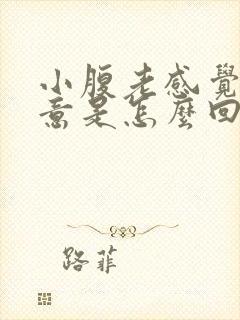 小腹老感覺
意是怎麼回
路菲